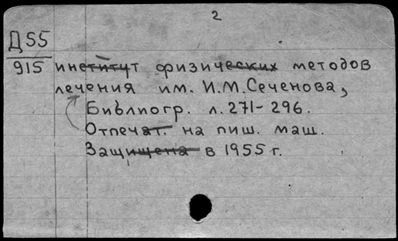 2
Д55
915 институт физических методов
лечения им. И.М. Сеченова,
Библиогр. л. 271-296.
Отпечат. на пиш. маш.
Защищена в 1955 г.